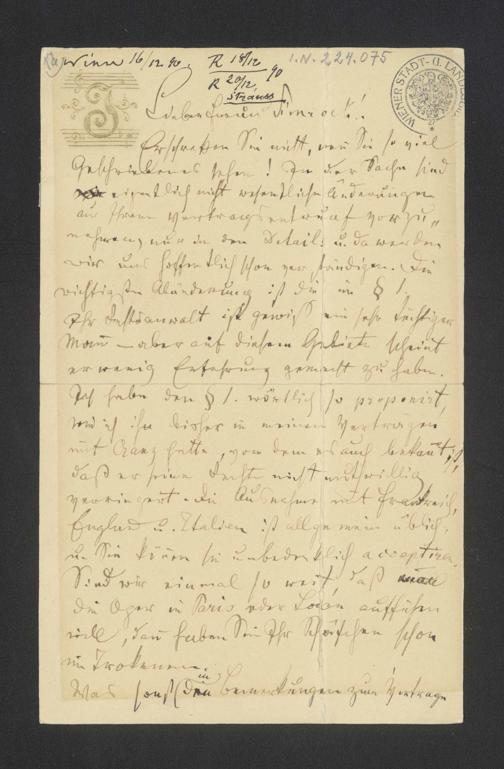 Wien 16/12. 90. R 18/12 90 I.N. 224.075
R 20/12.
Strauss
WIENER STADT- U. LANDES
J
Lieber Freund Simrock!
Erschrecken Sie nicht, wenn Sie so viel
Geschriebenes sehen! In der Sache sind
eigentlich nicht wesentliche Änderungen
an Ihrem Vertragsentwurf vorzu„
nehmen, nur in den Details u. da werden
wir uns hoffentlich schon verständigen. Die
wichtigste Abänderung ist die im § 1.
Ihr Justizanwalt ist gewiß ein sehr tüchtiger
Mann – aber auf diesem Gebiete scheint
er wenig Erfahrung gemacht zu haben.
Ich habe den § 1. wörtlich so proponirt,
wie ich ihn bisher in meinen Verträgen
mit Cranz hatte, von dem es auch bekannt,
daß er seine Rechte nicht muthwillig
verringert. Die Ausnahme mit Frankreich,
England u. Italien ist allgemein üblich
u. Sie können sie unbedenklich acceptiren.
Sind wir einmal so weit, daß man
die Oper in Paris oder London aufführen
will, dann haben Sie Ihr Schäfchen schon
im Trockenen.
Was sonst die Bemerkungen zum Vertrage